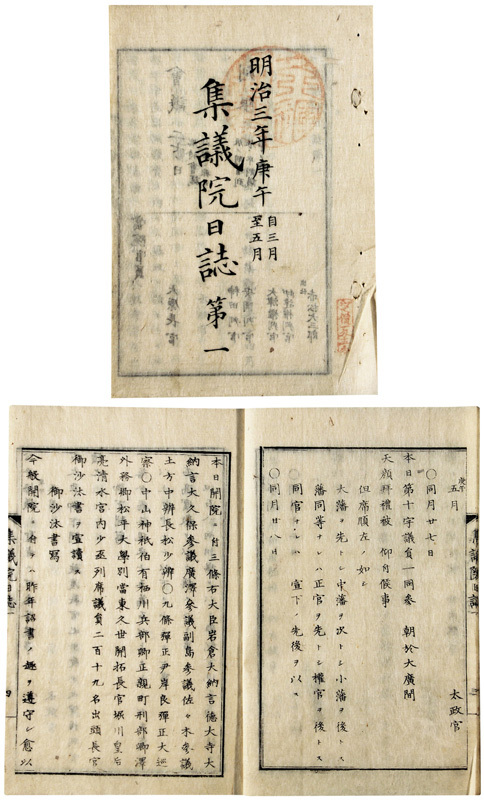 明治三年庚午
自三月
至五月
集議院日誌 第一
庚午
五月
太政官
〇同月廿七日
本日第十字議員一同参 朝於大廣間
天顔拝禮被 仰付候事
但席順左ノ如シ
大藩ヲ先トシ中藩ヲ次トシ小藩ヲ後トス
藩同等ナレハ正官ヲ先トシ權官ヲ後トス
同官ナレハ 宣下ノ先後ヲ以ス
〇同月廿八日
本日開院ニ付三條右大臣岩倉大納言徳大寺大
納言大久保参議廣澤参議副島参議佐々木参議
土方中辨長松少辨〇九條彈正尹岸良彈正大巡
察〇中山神祇伯有栖川兵部卿正親町刑部卿澤
外務卿松平大學別當東久世開拓長官堀川皇后
亮清水宮内少丞列席議員二百十九名出頭長官
御沙汰書ヲ宣讀ス
御沙汰書寫
今般開院ニ付テハ昨年詔書ノ趣ヲ遵守シ愈以
集議院日誌
四